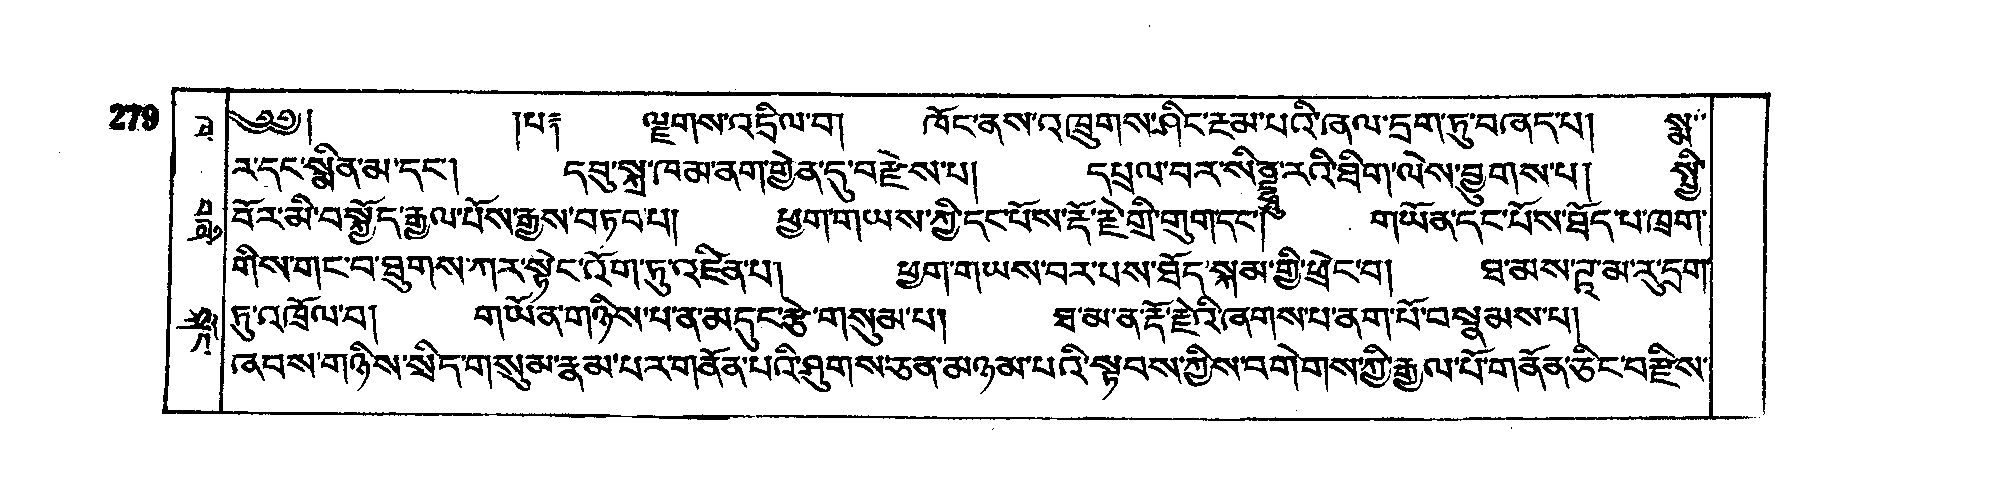 279
༄༅། །པ༔ ལྗགས་འདྲིལ་བ། ཁོང་ནས་འཁྲུགས་ཤིང་རྔམ་པའི་ཞལ་དྲག་ཏུ་བཞད་པ། སྨ་
ར་དང་སྨིན་མ་དང་། དབུ་སྐྲ་ཁམ་ནག་གྱེན་དུ་བརྫེས་པ། དཔྲལ་བར་སིནྡྷུ་རའི་ཐིག་ལེས་བྱུགས་པ། སྤྱི་
བོར་མི་བསྐྱོད་རྒྱལ་པོས་རྒྱས་བཏབ་པ། ཕྱག་གཡས་ཀྱི་དང་པོས་རྡོ་རྗེ་གྲི་གུག་དང་། གཡོན་དང་པོས་ཐོད་པ་ཁྲག་
གིས་གང་བ་ཐུགས་ཀར་སྟེང་འོག་ཏུ་འཛིན་པ། ཕྱག་གཡས་བར་པས་ཐོད་སྐམ་གྱི་ཕྲེང་བ། ཐ་མས་ཌ་མ་རུ་དྲག་
ཏུ་འཁྲོལ་བ། གཡོན་གཉིས་པ་ན་མདུང་རྩེ་གསུམ་པ། ཐ་མ་ན་རྡོ་རྗེའི་ཞགས་པ་ནག་པོ་བསྣམས་པ།
ཞབས་གཉིས་སྲིད་གསུམ་རྣམ་པར་གནོན་པའི་ཤུགས་ཅན་མཉམ་པའི་སྟབས་ཀྱིས་བགེགས་ཀྱི་རྒྱལ་པོ་གནོན་ཅིང་བརྫིས་